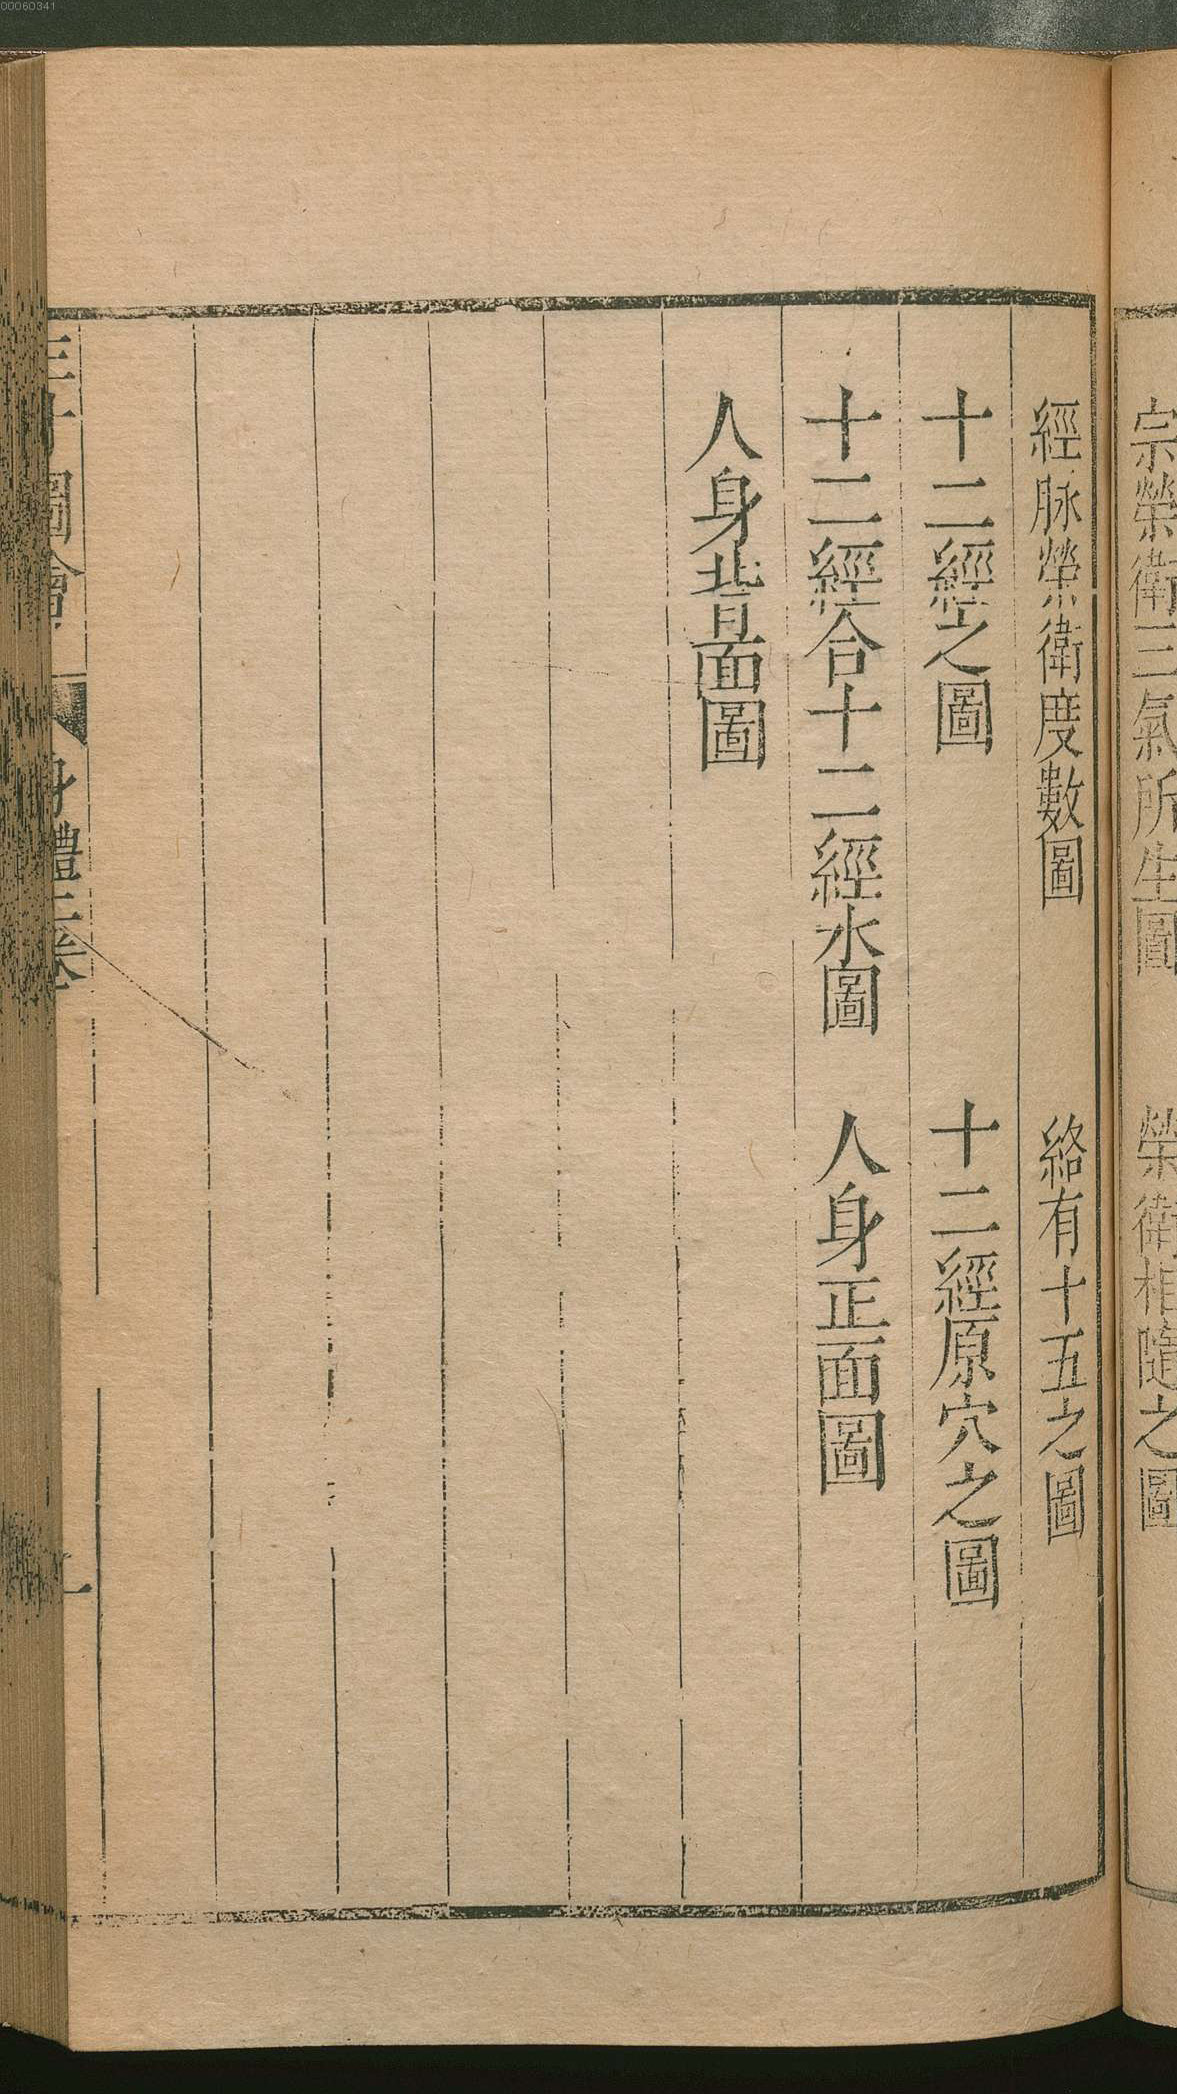 00060341
宗榮衛三氣所生圖　榮衛相隨之圖
經脉榮衛度數圖　絡有十五之圖
十二經之圖　十二經原穴之圖
十二經合十二經水圖　人身正面圖
人身背面圖
三才圖會　身體三卷　一